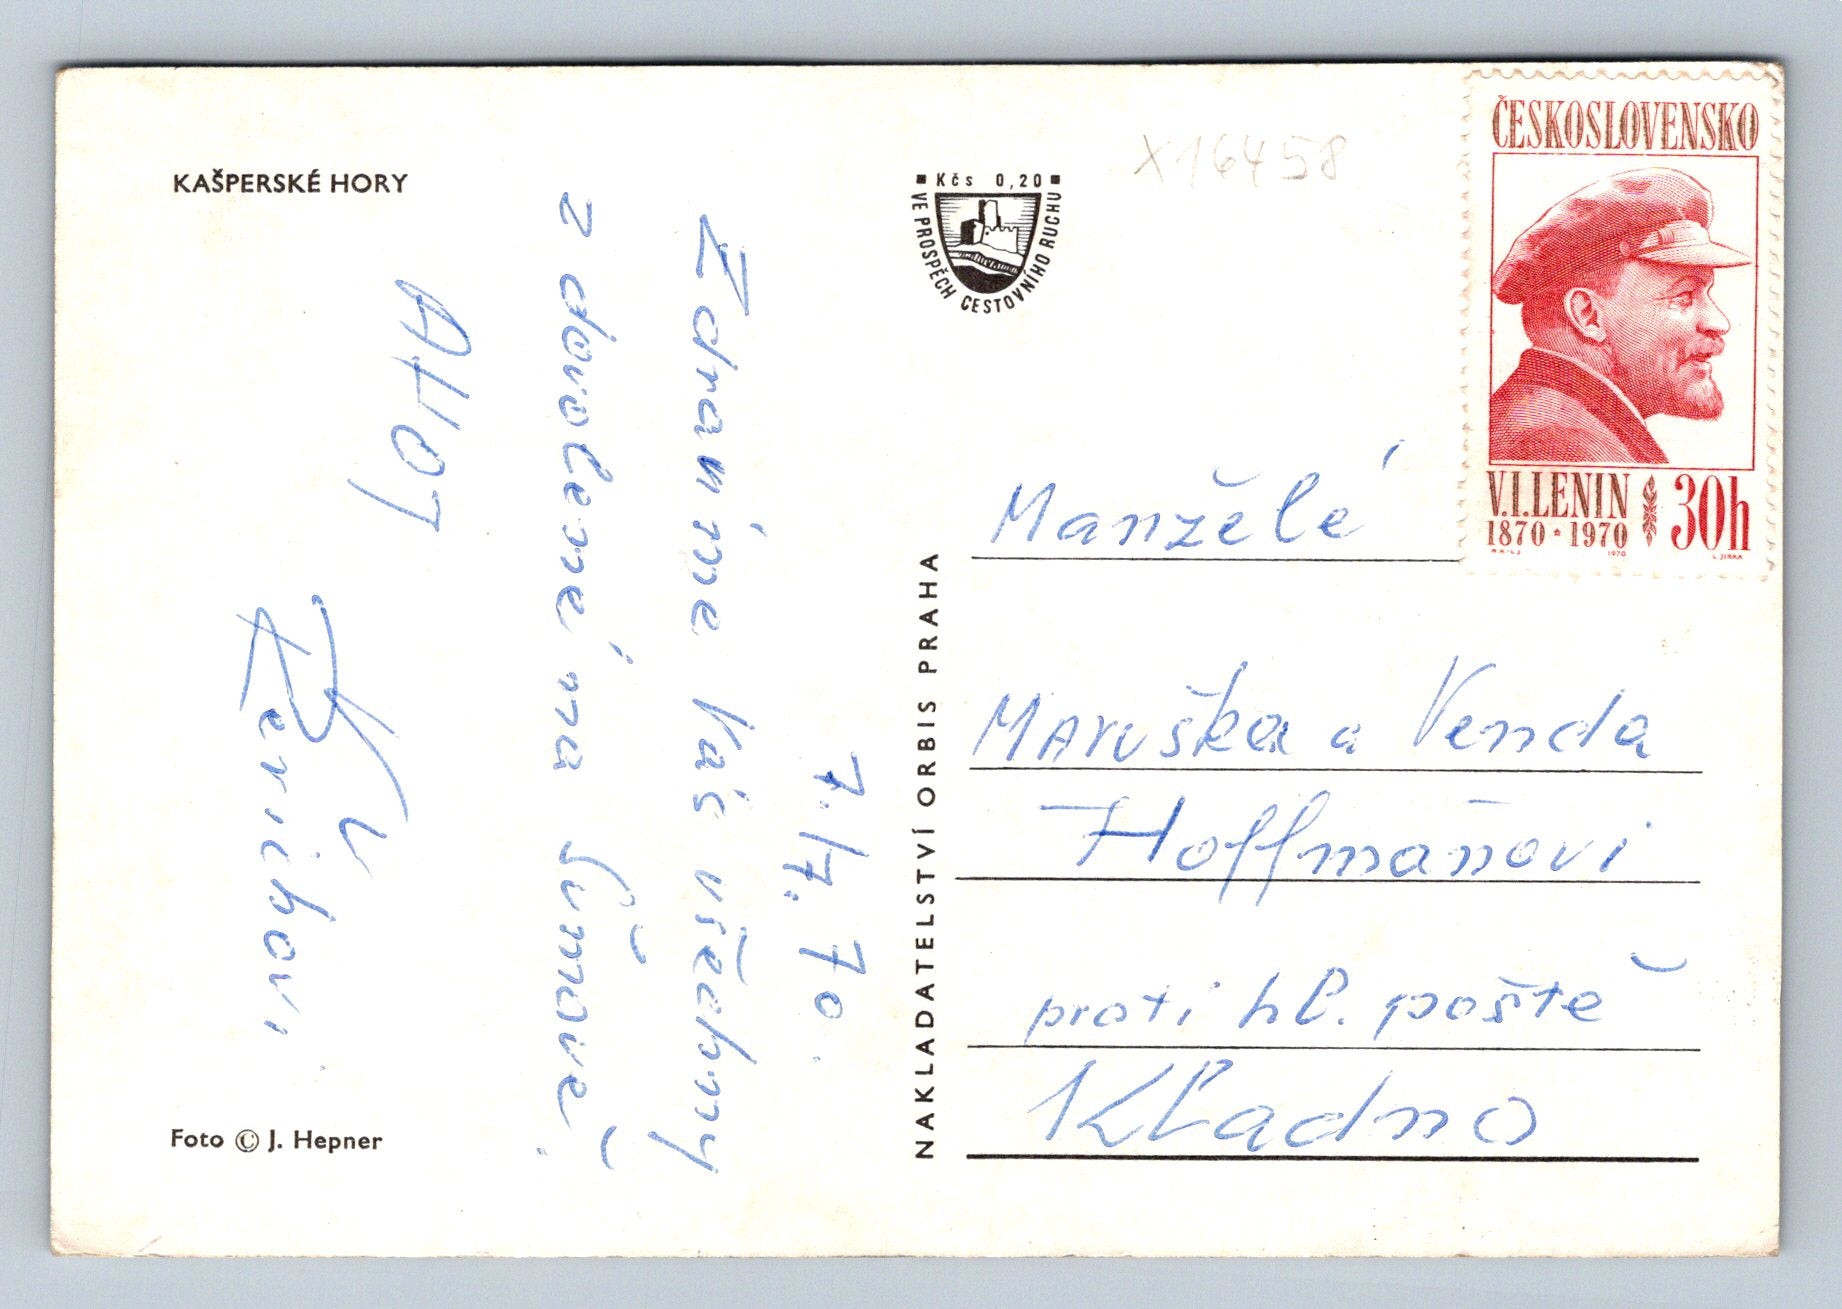 KAŠPERSKÉ HORY
7. 7. 70.
Zdravíme Vás všechny
z dovolené na Šumavě.
AHOJ
Foto © J. Hepner
Kčs 0,20
VE PROSPĚCH CESTOVNÍHO RUCHU
NAKLADATELSTVÍ ORBIS PRAHA
X16458
ČESKOSLOVENSKO
V.I.LENIN
1870 * 1970
30h
1970
L. JIRKA
Manželé
Maruška a Venda
Hoffmaňovi
proti hl. poště
Kladno